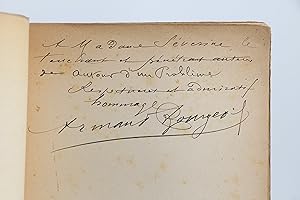 A Madame Séverine, le
touchant et pénétrant auteur
de Autour d'un Problème
Respectueux et admiratif
hommage
Armand Bourgeois